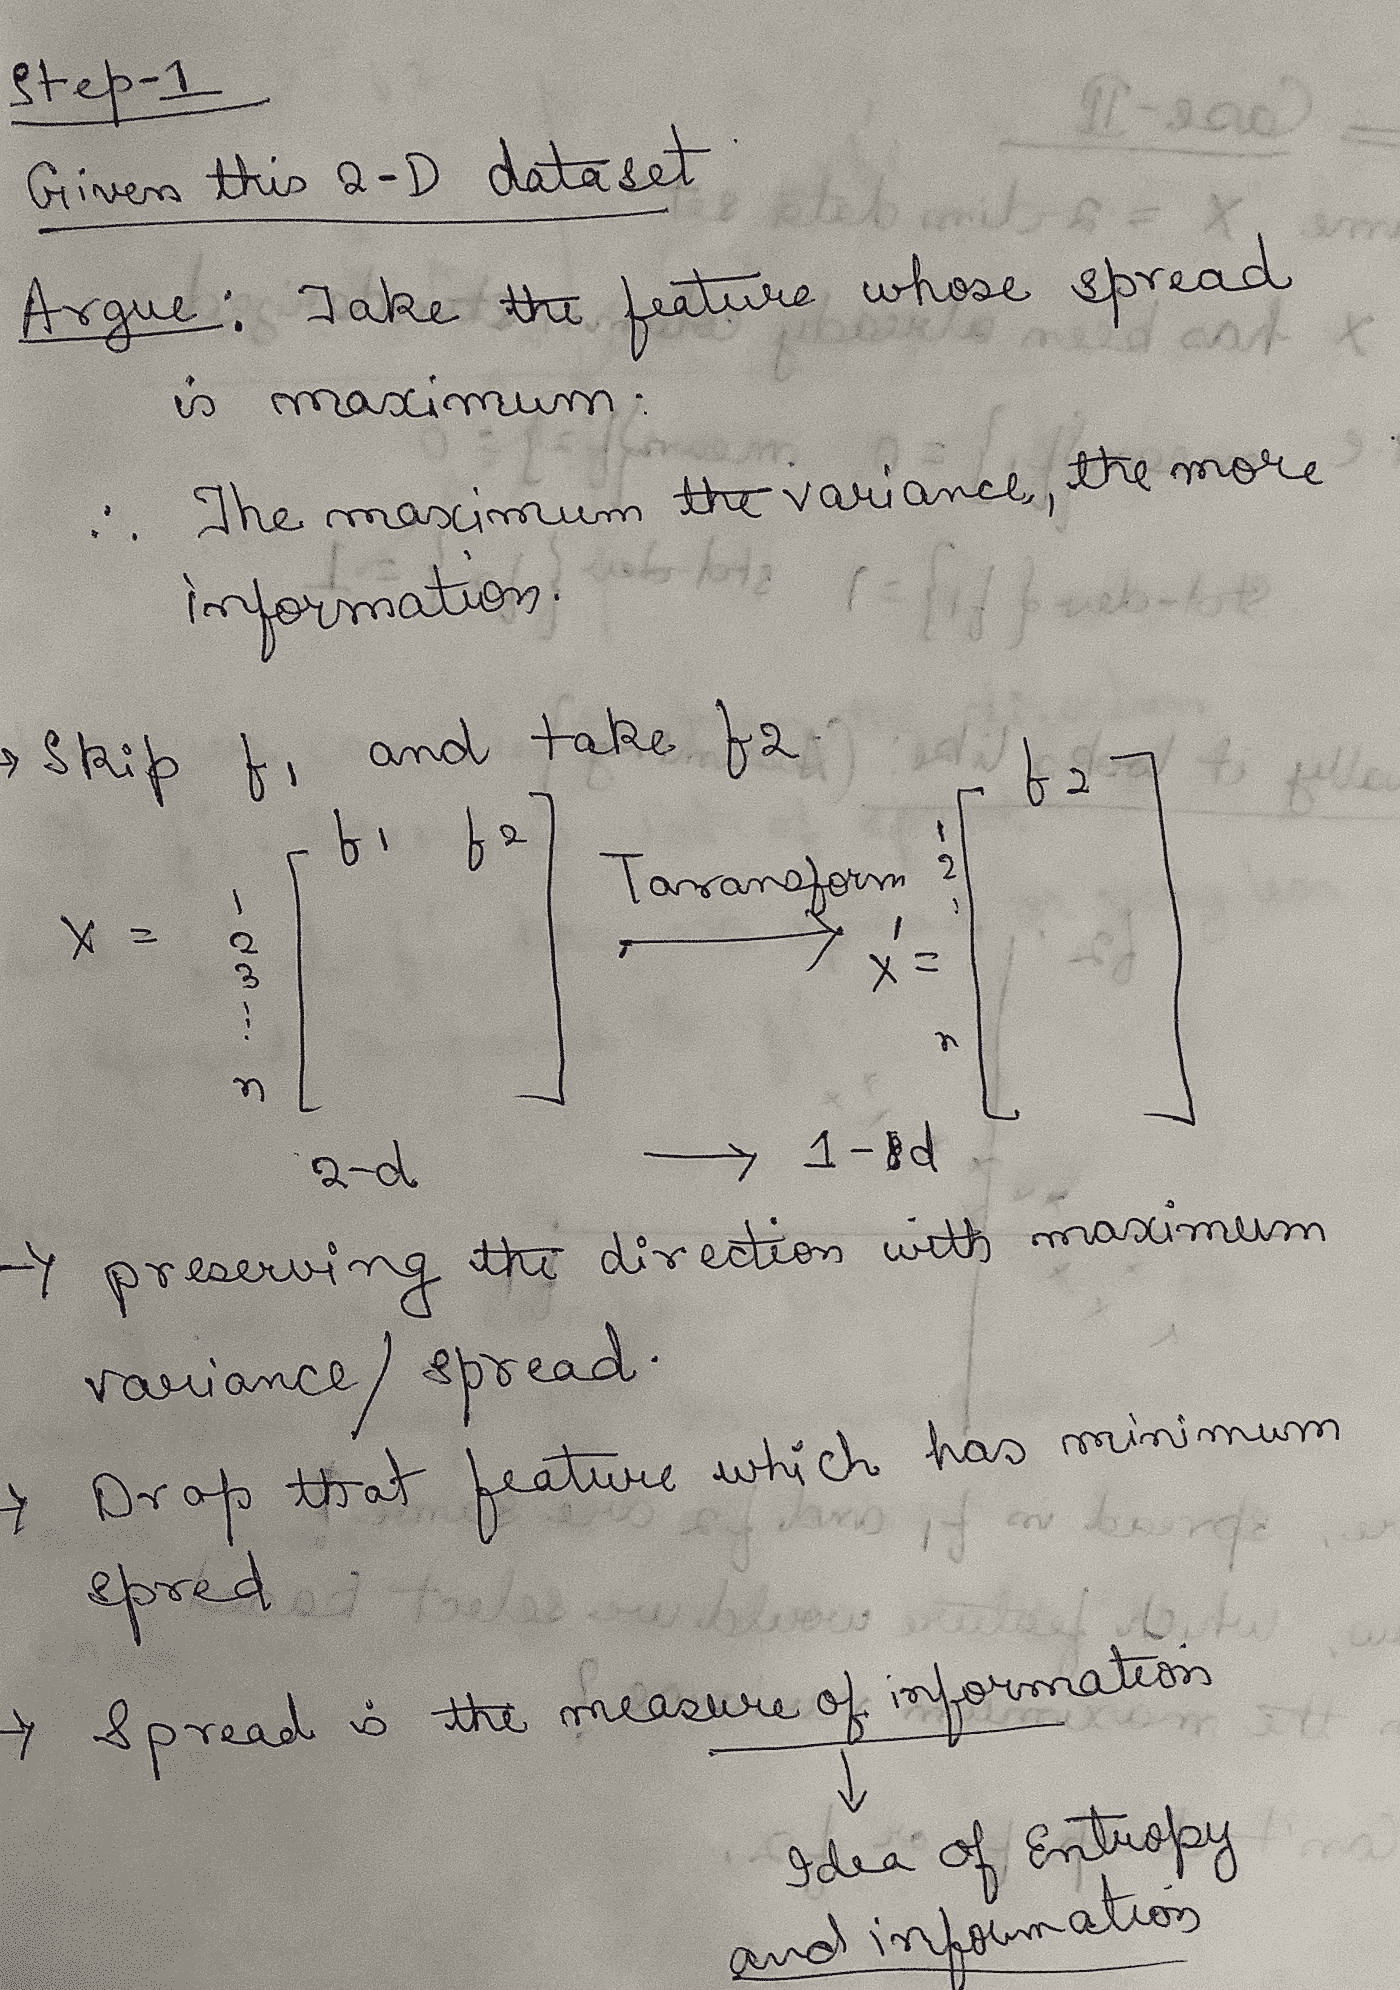 Step-1
Given this 2-D dataset
Argue: Take the feature whose spread
is maximum.
∴ The maximum the variance, the more
information.
→ Skip f1 and take f2.
f1 f2
f2
X = 1 2 3 ⋮ n
Taransform
X' = 1 2 ⋮ n
2-d → 1-d
→ preserving the direction with maximum
variance/spread.
→ Drop that feature which has minimum
spred
→ Spread is the measure of information
↓
Idea of Entropy
and information